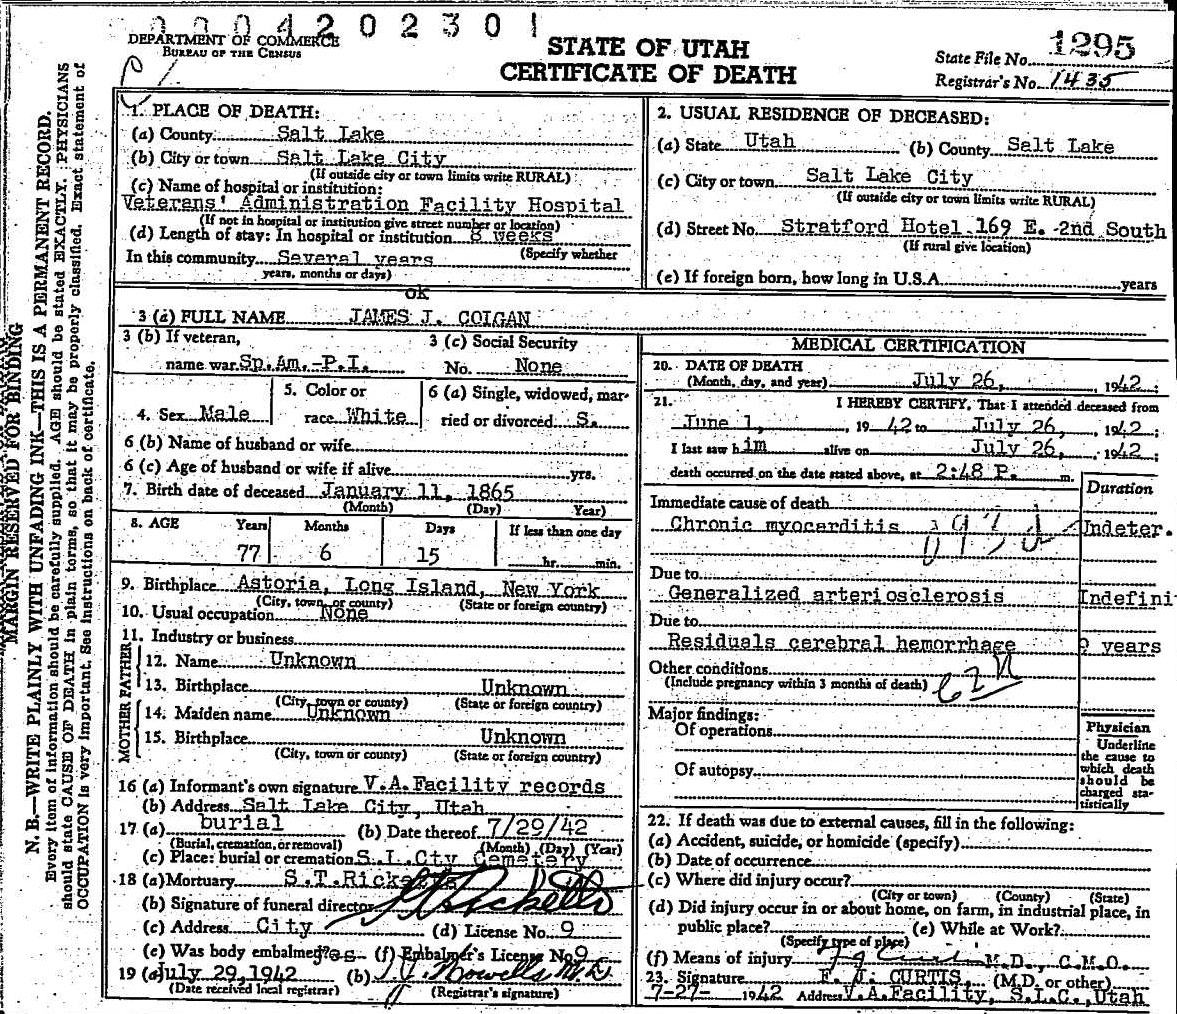 0004202301
DEPARTMENT OF COMMERCE
BUREAU OF THE CENSUS
STATE OF UTAH
CERTIFICATE OF DEATH
State File No. 1295
Registrar's No. 1435
MARGIN RESERVED FOR BINDING
N. B.—WRITE PLAINLY WITH UNFADING INK—THIS IS A PERMANENT RECORD.
Every item of information should be carefully supplied. AGE should be stated EXACTLY. PHYSICIANS
should state CAUSE OF DEATH in plain terms, so that it may be properly classified. Exact statement of
OCCUPATION is very important. See instructions on back of certificate.
1. PLACE OF DEATH:
(a) County Salt Lake
(b) City or town Salt Lake City
(If outside city or town limits write RURAL)
(c) Name of hospital or institution:
Veterans' Administration Facility Hospital
(If not in hospital or institution give street number or location)
(d) Length of stay: In hospital or institution 8 weeks
(Specify whether
In this community Several years
years, months or days)
2. USUAL RESIDENCE OF DECEASED:
(a) State Utah (b) County Salt Lake
(c) City or town Salt Lake City
(If outside city or town limits write RURAL)
(d) Street No. Stratford Hotel 169 E. 2nd South
(If rural give location)
(e) If foreign born, how long in U.S.A. years
OK
3 (a) FULL NAME JAMES J. COIGAN
3 (b) If veteran, 3 (c) Social Security
name war Sp.Am.-P.I. No. None
4. Sex Male 5. Color or race White 6 (a) Single, widowed, married or divorced S.
6 (b) Name of husband or wife
6 (c) Age of husband or wife if alive yrs.
7. Birth date of deceased January 11, 1865
(Month) (Day) Year)
8. AGE Years Months Days If less than one day
77 6 15 hr. min.
9. Birthplace Astoria, Long Island, New York
(City, town or county) (State or foreign country)
10. Usual occupation None
11. Industry or business
FATHER
12. Name Unknown
13. Birthplace Unknown
(City, town or county) (State or foreign country)
MOTHER
14. Maiden name Unknown
15. Birthplace Unknown
(City, town or county) (State or foreign country)
16 (a) Informant's own signature V.A.Facility records
(b) Address Salt Lake City, Utah
17 (a) burial (b) Date thereof 7/29/42
(Burial, cremation, or removal) (Month) (Day) (Year)
(c) Place: burial or cremation S.L.Cty Cemetery
18 (a) Mortuary S.T.Ricketts
(b) Signature of funeral director Ricketts
(c) Address City (d) License No. 9
(e) Was body embalmed? yes (f) Embalmer's License No. 9
19 (a) July 29, 1942 (b)
(Date received local registrar) (Registrar's signature)
MEDICAL CERTIFICATION
20. DATE OF DEATH
(Month, day, and year) July 26, 1942;
21. I HEREBY CERTIFY, That I attended deceased from
June 1, 1942 to July 26, 1942;
I last saw him alive on July 26, 1942;
death occurred on the date stated above, at 2:48 P. m.
Duration
Immediate cause of death
Chronic myocarditis Indeter.
Due to
Generalized arteriosclerosis Indefini
Due to
Residuals cerebral hemorrhage years
Other conditions
(Include pregnancy within 3 months of death)
Major findings:
Of operations
Of autopsy
Physician
Underline
the cause to
which death
should be
charged sta-
tistically
22. If death was due to external causes, fill in the following:
(a) Accident, suicide, or homicide (specify)
(b) Date of occurrence
(c) Where did injury occur?
(City or town) (County) (State)
(d) Did injury occur in or about home, on farm, in industrial place, in
public place? (e) While at Work?
(Specify type of place)
(f) Means of injury M.D., C.M.O.
23. Signature F. J. CURTIS, (M.D. or other)
7-27- 1942 Address V.A.Facility, S.L.C., Utah